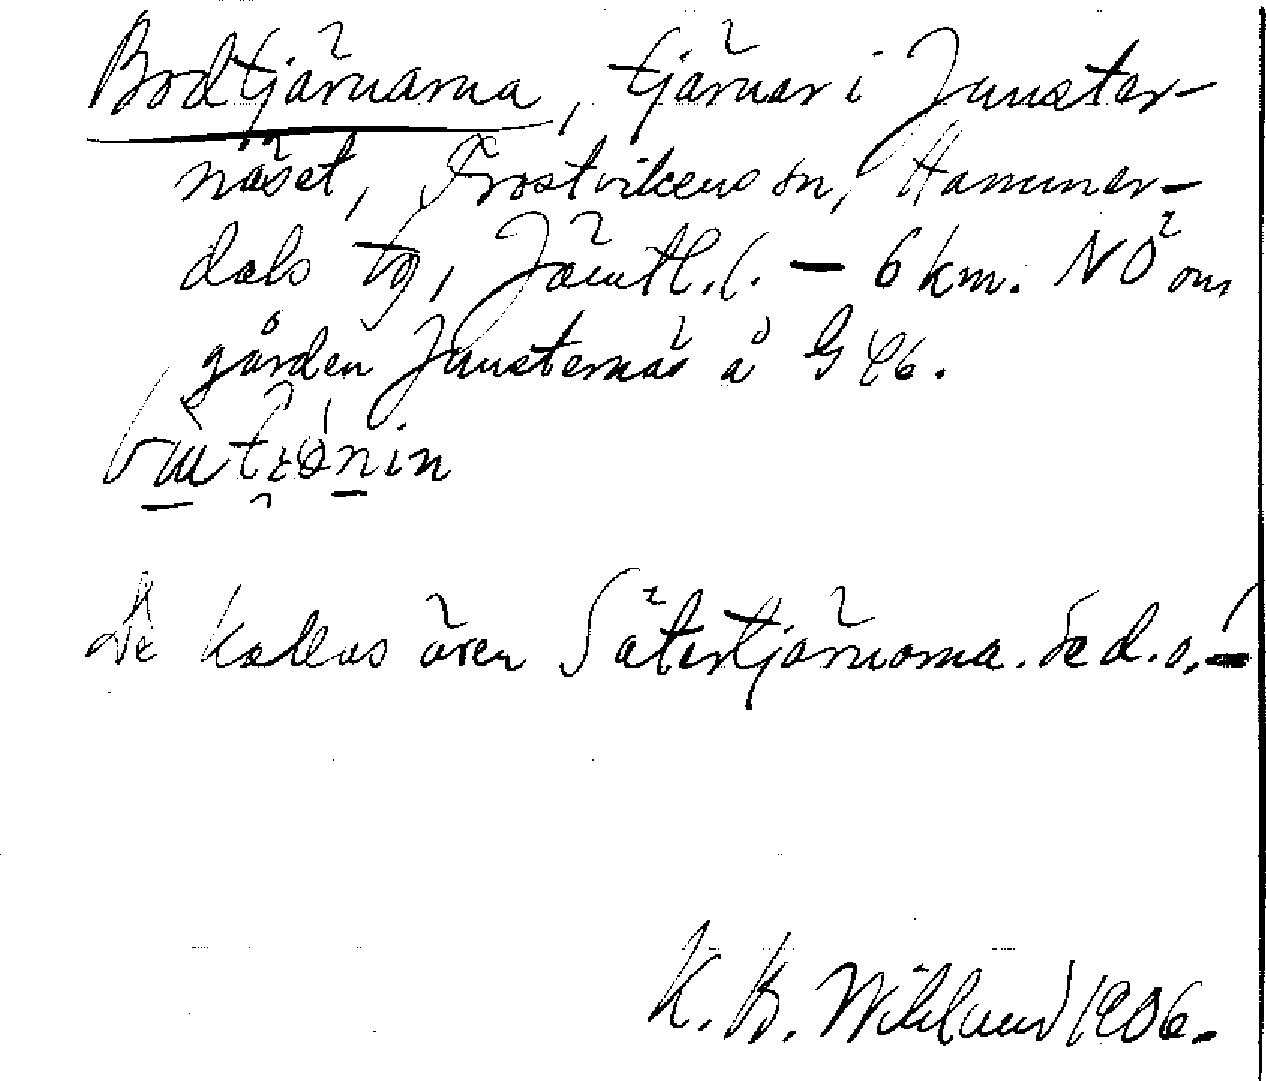 Bodtjärnarna, tjärnar i Junster-
näset, Frostvikens sn, Hammer-
dals tg, Jämtl. l. — 6 km. NÖ om
gården Junsternäs å G 46.
De kallas även Sätertjärnarna. Se d. o. —
K. B. Wiklund 1906.